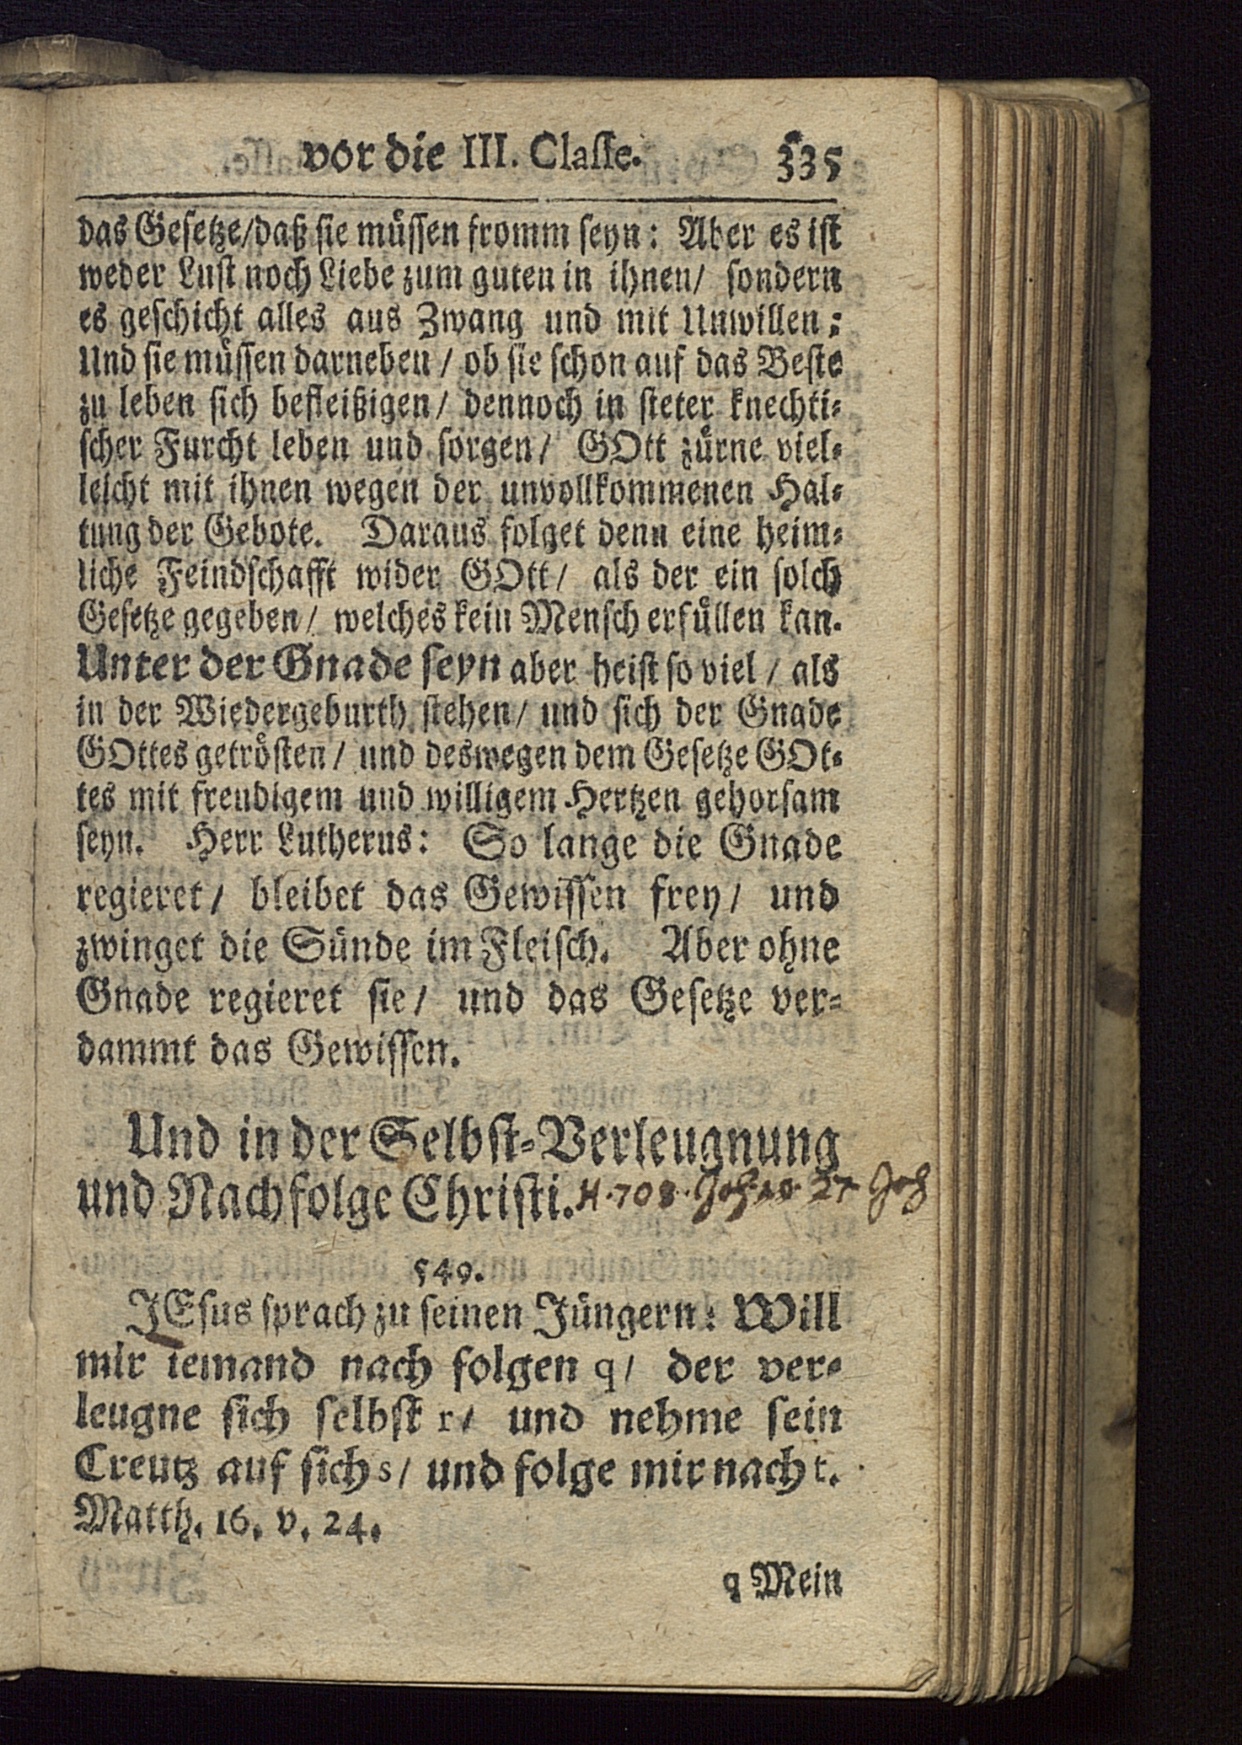 vor die III. Classe. 335
das Gesetze/daß sie müssen fromm seyn: Aber es ist
weder Lust noch Liebe zum guten in ihnen/ sondern
es geschicht alles aus Zwang und mit Unwillen:
Und sie müssen darneben/ ob sie schon auf das Beste
zu leben sich befleißigen/ dennoch in steter knechti-
scher Furcht leben und sorgen/ GOtt zürne viel-
leicht mit ihnen wegen der unvollkommenen Hal-
tung der Gebote. Daraus folget denn eine heim-
liche Feindschafft wider GOtt/ als der ein solch
Gesetze gegeben/ welches kein Mensch erfüllen kan.
Unter der Gnade seyn aber heist so viel/ als
in der Wiedergeburth stehen/ und sich der Gnade
GOttes getrösten/ und deswegen dem Gesetze GOt-
tes mit freudigem und willigem Hertzen gehorsam
seyn. Herr Lutherus: So lange die Gnade
regieret/ bleibet das Gewissen frey/ und
zwinget die Sünde im Fleisch. Aber ohne
Gnade regieret sie/ und das Gesetze ver-
dammt das Gewissen.
Und in der Selbst-Verleugnung
und Nachfolge Christi. H. 708. Joh 10 27 Joh
549.
JEsus sprach zu seinen Jüngern: Will
mir iemand nach folgen q/ der ver-
leugne sich selbst r/ und nehme sein
Creutz auf sich s/ und folge mir nach t.
Matth. 16. v. 24.
q Mein